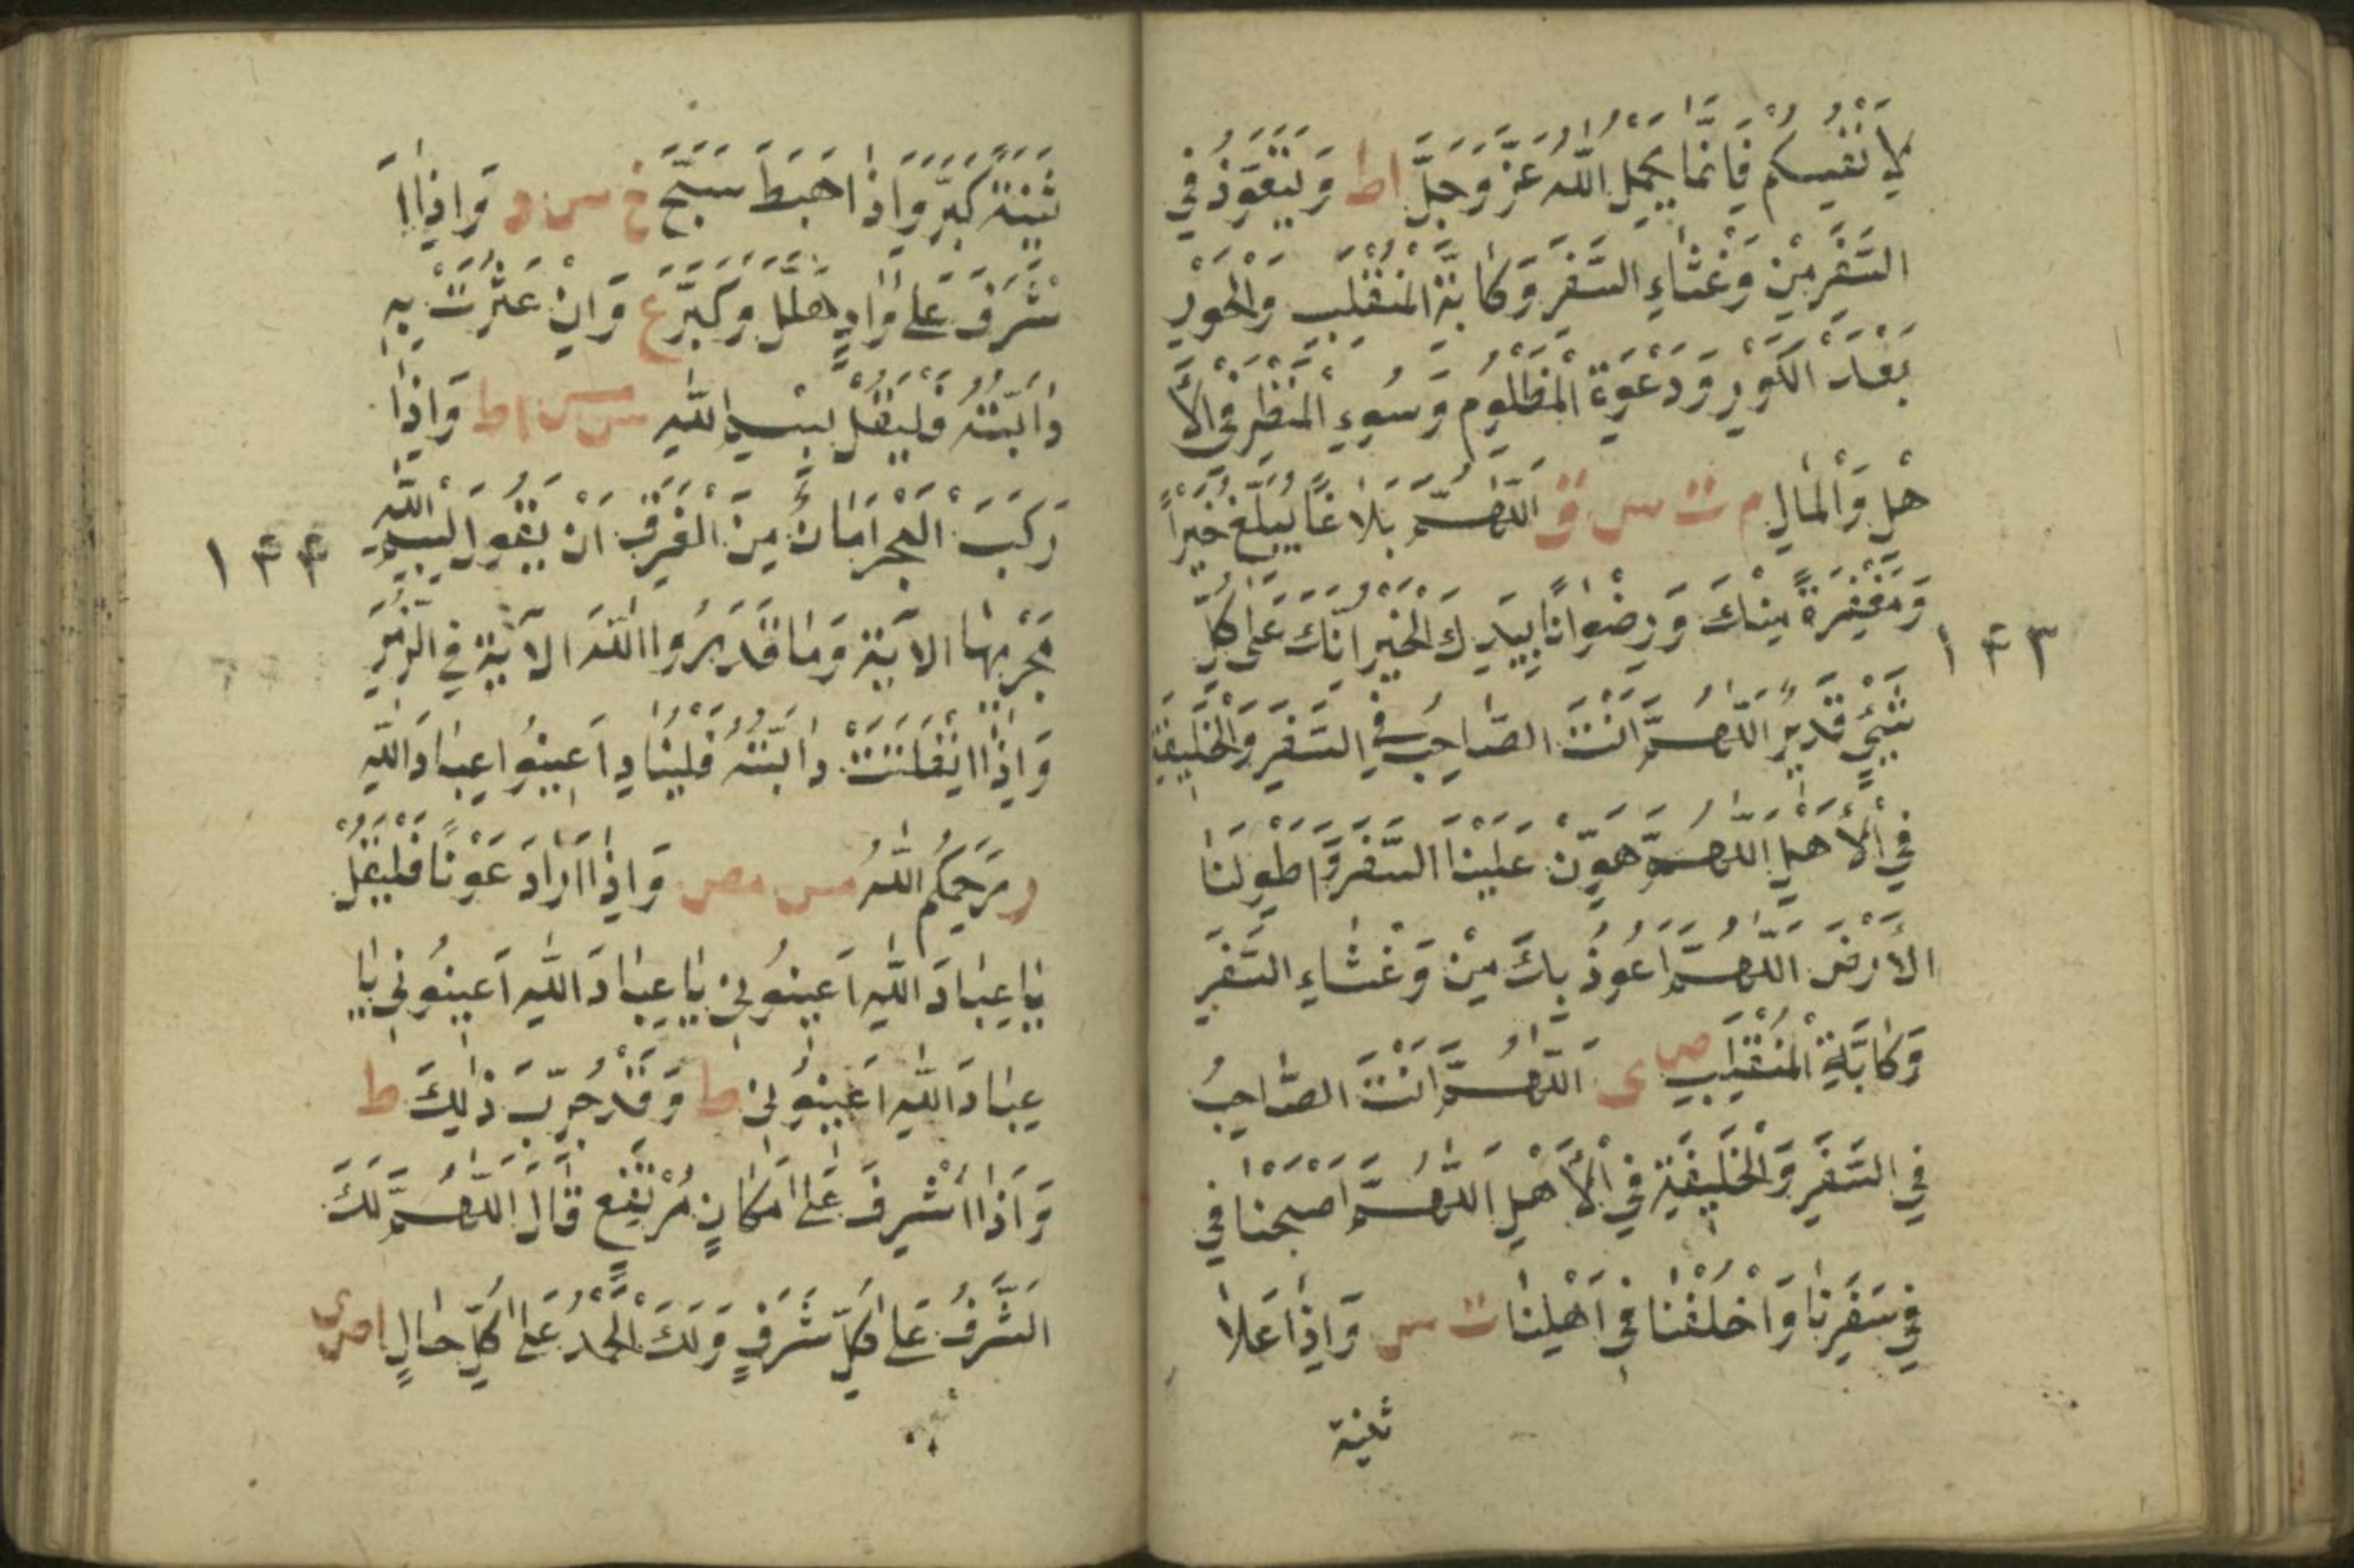 لِاَنْفُسِكُمْ فَاِنَّمَا يَحْمِلُ اللّٰهُ عَزَّ وَجَلَّ اط وَيَتَعَوَّذُ فِي
السَّفَرِ مِنْ وَعْثَاءِ السَّفَرِ وَكَابَةِ الْمُنْقَلَبِ وَالْحَوْرِ
بَعْدَ الْكَوْرِ وَدَعْوَةِ الْمَظْلُومِ وَسُوءِ الْمَنْظَرِ فِي الْاَ
هْلِ وَالْمَالِ م ت س ق اَللّٰهُمَّ بَلَاغًا يُبَلِّغُ خَيْراً
وَمَغْفِرَةً مِنْكَ وَرِضْوَانًا بِيَدِكَ الْخَيْرُ اِنَّكَ عَلٰى كُلِّ
شَيْءٍ قَدِيرٌ اَللّٰهُمَّ اَنْتَ الصَّاحِبُ فِي السَّفَرِ وَالْخَلِيفَةُ
فِي الْاَهْلِ اَللّٰهُمَّ هَوِّنْ عَلَيْنَا السَّفَرَ وَاطْوِ لَنَا
الْاَرْضَ اَللّٰهُمَّ اَعُوذُ بِكَ مِنْ وَعْثَاءِ السَّفَرِ
وَكَابَةِ الْمُنْقَلَبِ ص ى اَللّٰهُمَّ اَنْتَ الصَّاحِبُ
فِي السَّفَرِ وَالْخَلِيفَةُ فِي الْاَهْلِ اَللّٰهُمَّ اصْحَبْنَا فِي
فِي سَفَرِنَا وَاخْلُفْنَا فِي اَهْلِنَا ت س وَاِذَا عَلَا
ثنية
١٤٣
ثَنِيَّةً كَبَّرَ وَاِذَا هَبَطَ سَبَّحَ خ س د وَاِذَا اَ
شْرَفَ عَلٰى وَادٍ هَلَّلَ وَكَبَّرَ ع وَاِنْ عَثَرَتْ بِهِ
دَابَّتُهُ فَلْيَقُلْ بِسْمِ اللّٰهِ س مس اط وَاِذَا
رَكِبَ الْبَحْرَ اَمَانٌ مِنَ الْغَرَقِ اَنْ يَقُولَ بِسْمِ اللّٰهِ
مَجْرٰيهَا الْاٰيَةَ وَمَا قَدَرُوا اللّٰهَ الْاٰيَةَ فِي الزُّمَرِ
وَاِذَا انْفَلَتَتْ دَابَّتُهُ فَلْيُنَادِ اَعِينُوا عِبَادَ اللّٰهِ
ر رَحِمَكُمُ اللّٰهُ مس مص وَاِذَا اَرَادَ عَوْنًا فَلْيَقُلْ
يَا عِبَادَ اللّٰهِ اَعِينُونِي يَا عِبَادَ اللّٰهِ اَعِينُونِي يَا
عِبَادَ اللّٰهِ اَعِينُونِي ط وَقَدْ جُرِّبَ ذٰلِكَ ط
وَاِذَا اَشْرَفَ عَلٰى مَكَانٍ مُرْتَفِعٍ قَالَ اَللّٰهُمَّ لَكَ
الشَّرَفُ عَلٰى كُلِّ شَرَفٍ وَلَكَ الْحَمْدُ عَلٰى كُلِّ حَالٍ ا ص ى
١٤٤